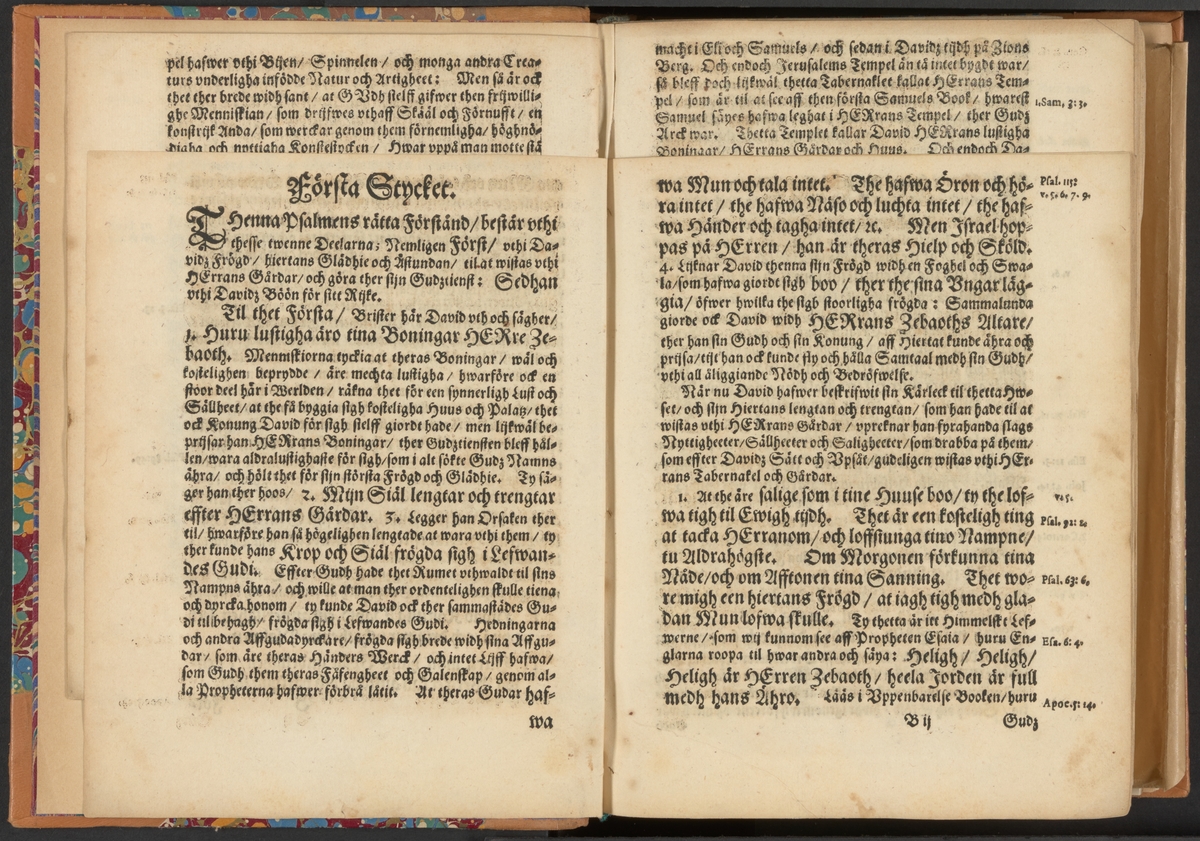 pel hafwer vthi Bijen/ Spinnelen / och monga andra Crea-
turs vnderligha infödde Natur och Artigheet: Men så är ock
thet ther brede widh sant / at GUdh sielff gifwer then frijwilli-
ghe Menniskian / som drijfwes vthaff Skääl och Förnufft / en
konstrijk Anda/ som werckar genom them förnemligha/ höghnö-
digha och nyttigha Konstestycken / Hwar vppå man motte stå
Första Stycket.
THenna Psalmens rätta Förstånd/ består vthi
thesse twenne Deelarna; Nemligen Först/ vthi Da-
vidz Frögd/ hiertans Glädhie och Åstundan/ til at wistas vthi
HErrans Gårdar/ och göra ther sijn Gudztienst: Sedhan
vthi Davidz Böön för sitt Rijke.
Til thet Första/ Brister här David vth och sägher/
1. Huru lustigha äro tina Boningar HERre Ze-
baoth. Menniskiorna tyckia at theras Boningar/ wäl och
kostelighen beprydde / äre mechta lustigha/ hwarföre ock en
stoor deel här i Werlden / räkna thet för een synnerligh Lust och
Sällheet/ at the få byggia sigh kosteligha Huus och Palatz/ thet
ock Konung David för sigh sielff giordt hade/ men lijkwäl be-
prijsar han HERrans Boningar/ ther Gudztiensten bleff häl-
len/ wara aldralustighaste för sigh/ som i alt sökte Gudz Namns
ähra/ och hölt thet för sijn största Frögd och Glädhie. Ty sä-
ger han ther hoos/ 2. Mijn Siäl lengtar och trengtar
effter HErrans Gårdar. 3. Legger han Orsaken ther
til/ hwarföre han så högelighen lengtade at wara vthi them/ ty
ther kunde hans Krop och Siäl frögda sigh i Lefwan-
des Gudi. Effter Gudh hade thet Rumet vthwaldt til sins
Nampns ähra/ och wille at man ther ordentelighen skulle tiena
och dyrcka honom/ ty kunde David ock ther sammastädes Gu-
di til behagh/ frögda sigh i Lefwandes Gudi. Hedningarna
och andra Affgudadyrckare/ frögda sigh brede widh sina Affgu-
dar/ som äre theras Händers Werck/ och intet Lijff hafwa/
som Gudh them theras Fåfengheet och Galenskap/ genom al-
la Propheterna hafwer förbrå låtit. At theras Gudar haf-
wa
macht i Eli och Samuels / och sedan i Davidz tijdh på Zions
Berg. Och endoch Jerusalems Tempel än tå intet bygdt war/
så bleff doch lijkwäl thetta Tabernaklet kallat HErrans Tem-
pel/ som är til at see aff then första Samuels Book/ hwarest
1. Sam, 3: 3.
Samuel säyes hafwa leghat i HERrans Tempel/ ther Gudz
Arck war. Thetta Templet kallar David HERrans lustigha
Boningar/ HErrans Gårdar och Huus. Och endoch Da-
wa Mun och tala intet. The hafwa Öron och hö-
Psal. 115:
ra intet / the hafwa Näso och luchta intet / the haf-
v. 5. 6. 7. 9.
wa Händer och tagha intet/ ꝛc. Men Israel hop-
pas på HErren / han är theras Hielp och Sköld.
4. Lijknar David thenna sijn Frögd widh en Foghel och Swa-
la/ som hafwa giordt sigh boo / ther the sina Vngar läg-
gia/ öfwer hwilka the sigh stoorligha frögda: Sammalunda
giorde ock David widh HERrans Zebaoths Altare/
ther han sin Gudh och sin Konung / aff Hiertat kunde ähra och
prijsa/ tijt han ock kunde fly och hålla Samtaal medh sin Gudh/
vthi all åliggiande Nödh och Bedröfwelse.
När nu David hafwer beskrifwit sin Kärleck til thetta Hw-
set/ och sijn Hiertans lengtan och trengtan/ som han hade til at
wistas vthi HERrans Gårdar / vpreknar han fyrahanda slags
Nyttigheeter/ Sällheeter och Saligheeter/ som drabba på them/
som effter Davidz Sätt och Vpsåt/ gudeligen wistas vthi HEr-
rans Tabernakel och Gårdar.
1. At the äre salige som i tine Huuse boo/ ty the lof-
v. 5.
wa tigh til Ewigh tijdh. Thet är een kosteligh ting
Psal. 92: 2.
at tacka HErranom/ och loffsiunga tino Nampne/
tu Aldrahögste. Om Morgonen förkunna tina
Nåde/ och om Afftonen tina Sanning. Thet wo-
Psal. 63: 6.
re migh een hiertans Frögd / at iagh tigh medh gla-
dan Mun lofwa skulle. Ty thetta är itt Himmelskt Lef-
werne/ som wij kunnom see aff Propheten Esaia / huru En-
Esa. 6: 4.
glarna roopa til hwar andra och säya: Heligh/ Heligh/
Heligh är HErren Zebaoth/ heela Jorden är full
medh hans Ähro. Lääs i Vppenbarelse Booken/ huru
Apoc. 5: 14.
B ij Gudz